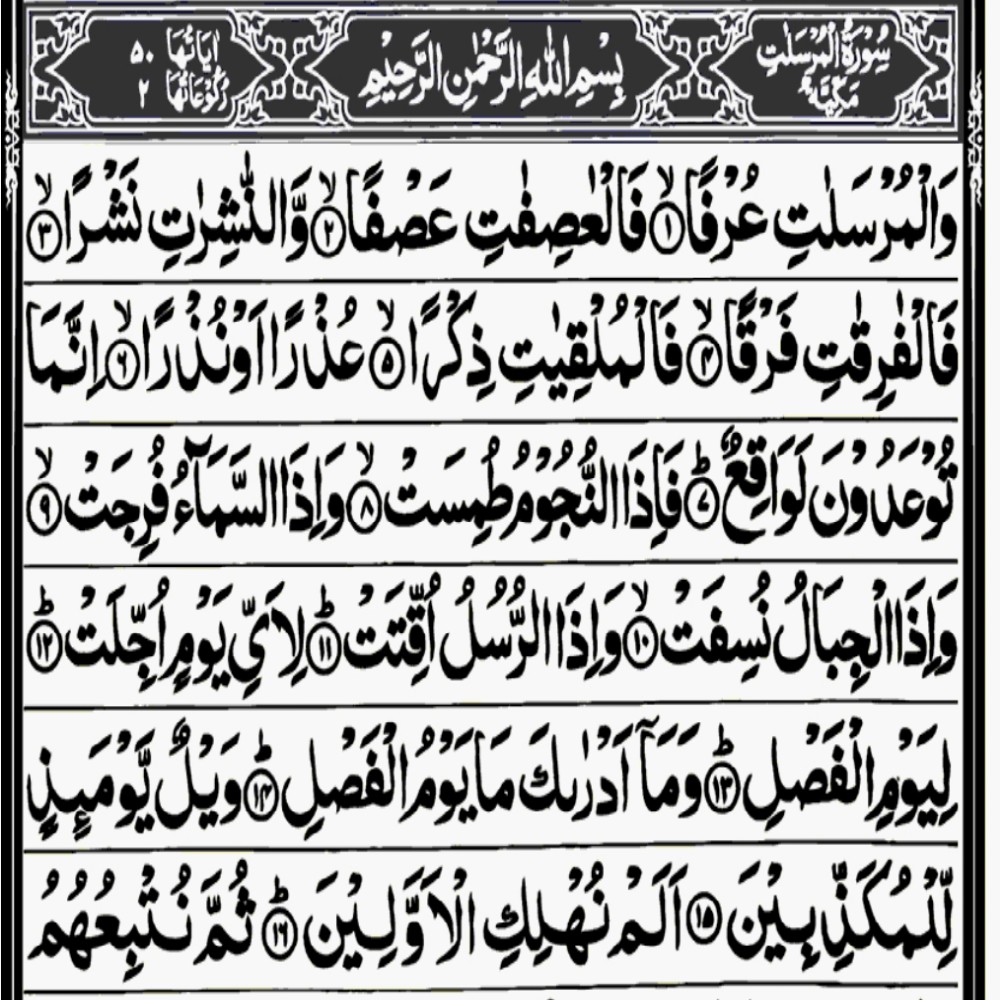 سُوْرَةُ الْمُرْسَلٰتِ مَكِّيَّةٌ بِسْمِ اللهِ الرَّحْمٰنِ الرَّحِيْمِ اٰيَاتُهَا ٥٠ رُكُوْعَاتُهَا ٢
وَالْمُرْسَلٰتِ عُرْفًا ۙ﴿۱﴾ فَالْعٰصِفٰتِ عَصْفًا ۙ﴿۲﴾ وَّالنّٰشِرٰتِ نَشْرًا ۙ﴿۳﴾
فَالْفٰرِقٰتِ فَرْقًا ۙ﴿۴﴾ فَالْمُلْقِيٰتِ ذِكْرًا ۙ﴿۵﴾ عُذْرًا اَوْ نُذْرًا ۙ﴿۶﴾ اِنَّمَا
تُوْعَدُوْنَ لَوَاقِعٌ ؕ﴿۷﴾ فَاِذَا النُّجُوْمُ طُمِسَتْ ۙ﴿۸﴾ وَاِذَا السَّمَآءُ فُرِجَتْ ۙ﴿۹﴾
وَاِذَا الْجِبَالُ نُسِفَتْ ۙ﴿۱۰﴾ وَاِذَا الرُّسُلُ اُقِّتَتْ ؕ﴿۱۱﴾ لِاَيِّ يَوْمٍ اُجِّلَتْ ؕ﴿۱۲﴾
لِيَوْمِ الْفَصْلِ ؕ﴿۱۳﴾ وَمَاۤ اَدْرٰىكَ مَا يَوْمُ الْفَصْلِ ؕ﴿۱۴﴾ وَيْلٌ يَّوْمَىِٕذٍ
لِّلْمُكَذِّبِيْنَ ﴿۱۵﴾ اَلَمْ نُهْلِكِ الْاَوَّلِيْنَ ؕ﴿۱۶﴾ ثُمَّ نُتْبِعُهُمُ